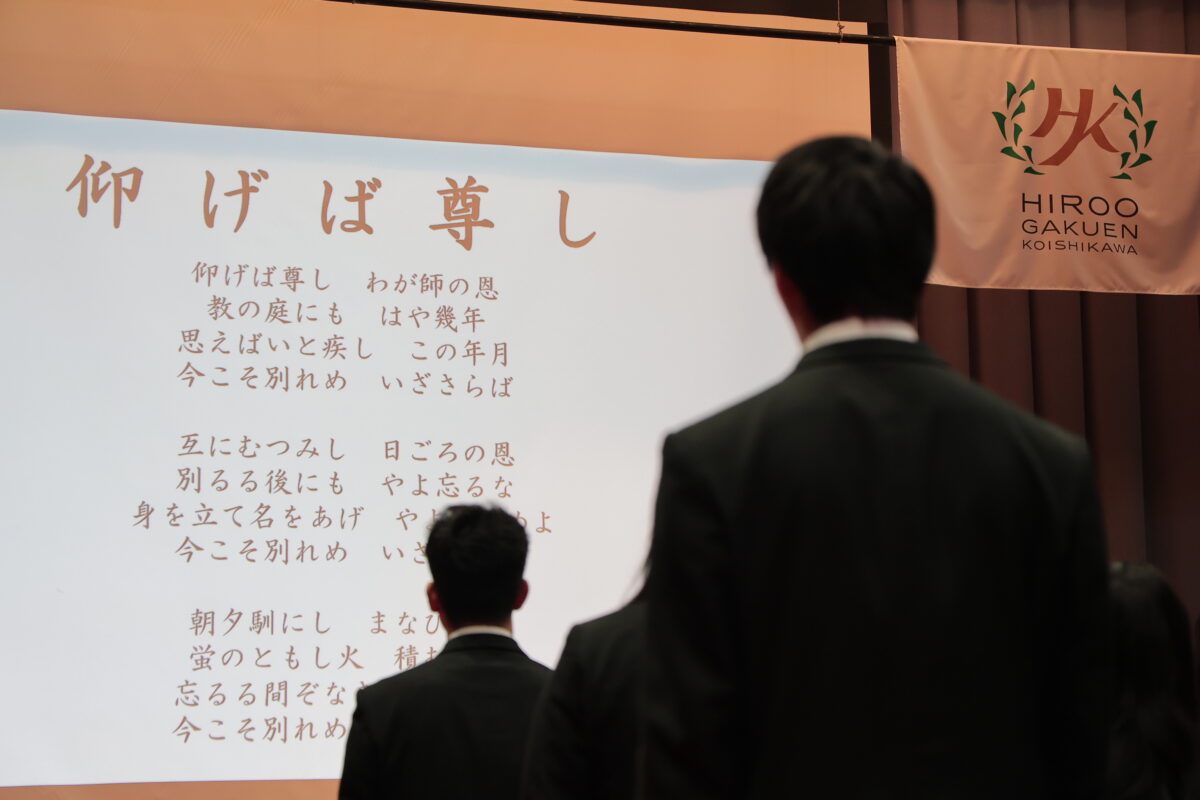 仰げば尊し
仰げば尊し　わが師の恩
教の庭にも　はや幾年
思えばいと疾し　この年月
今こそ別れめ　いざさらば
互にむつみし　日ごろの恩
別るる後にも　やよ忘るな
身を立て名をあげ　や
今こそ別れめ　い
朝夕馴にし　まな
蛍のともし火　積
忘るる間ぞな
今こそ別れめ
HK
HIROO
GAKUEN
KOISHIKAWA